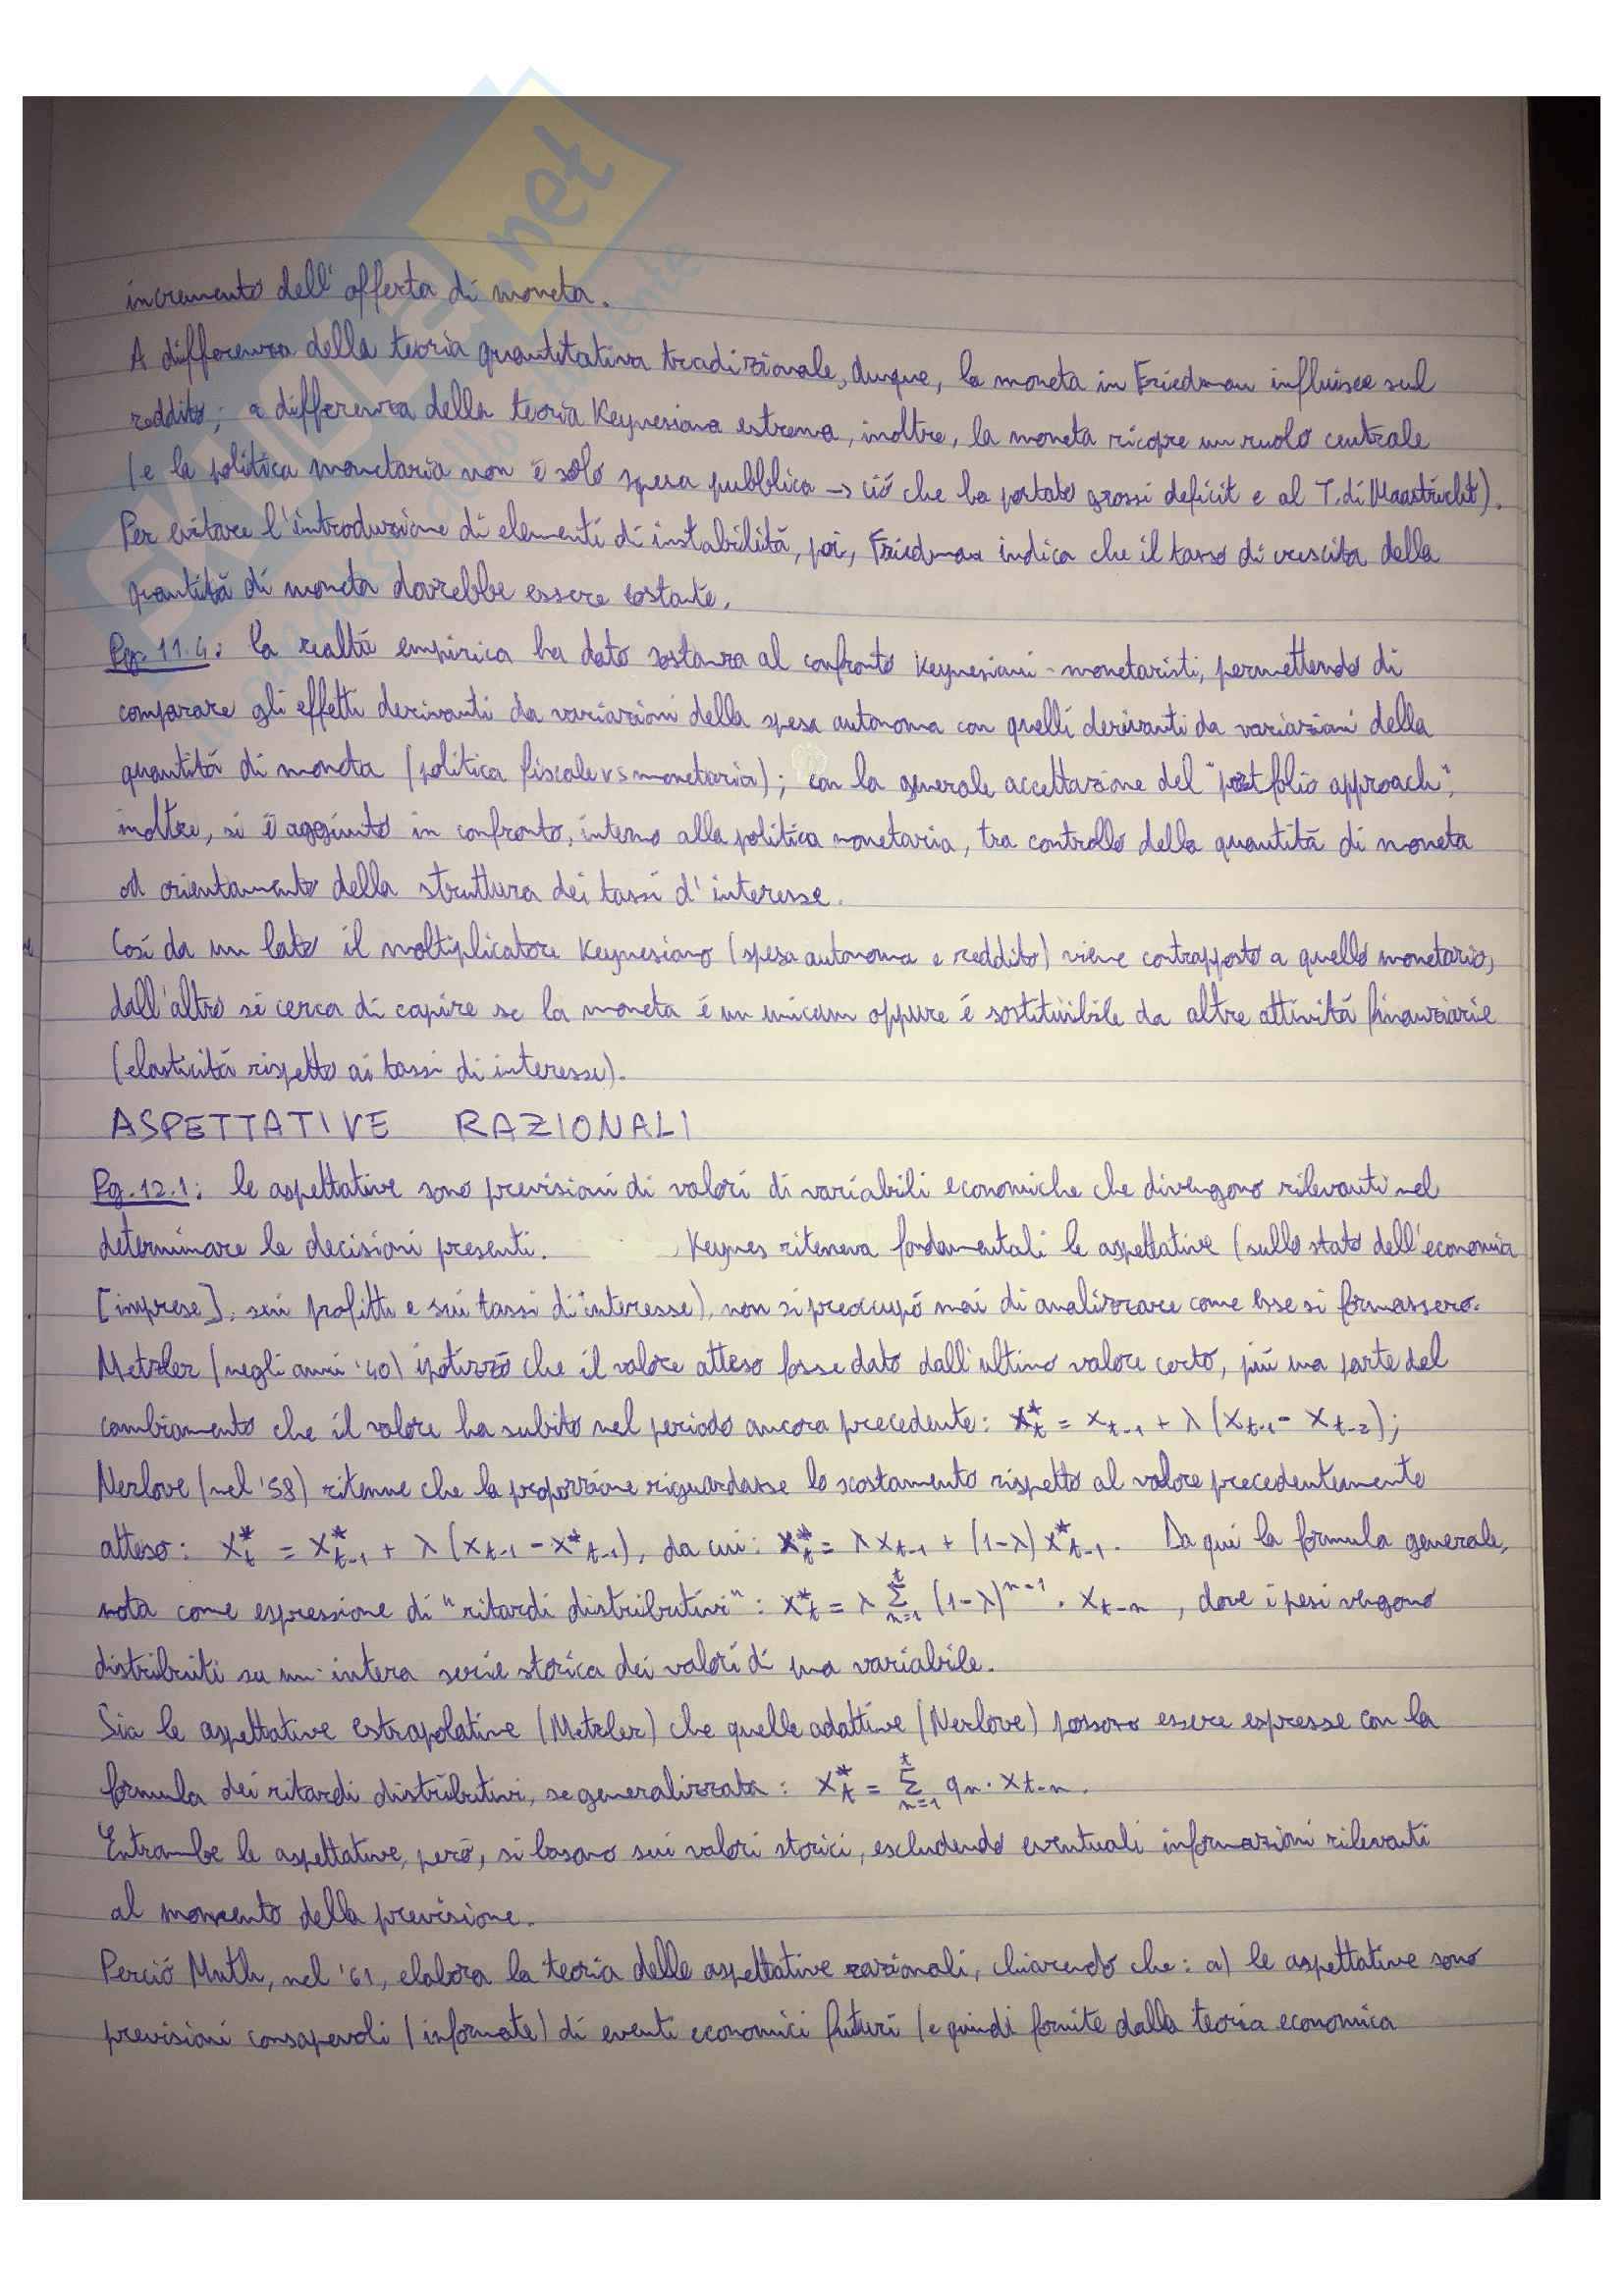 incremento dell'offerta di moneta.
A differenza della teoria quantitativa tradizionale, dunque, la moneta in Friedman influisce sul
reddito; a differenza della teoria Keynesiana estrema, inoltre, la moneta ricopre un ruolo centrale
(e la politica monetaria non è solo spesa pubblica → ciò che ha portato grossi deficit e al T. di Maastricht).
Per evitare l'introduzione di elementi di instabilità, poi, Friedman indica che il tasso di crescita della
quantità di moneta dovrebbe essere costante.
Pg. 11.4: la realtà empirica ha dato sostanza al confronto Keynesiani-monetaristi, permettendo di
comparare gli effetti derivanti da variazioni della spesa autonoma con quelli derivanti da variazioni della
quantità di moneta (politica fiscale vs monetaria); con la generale accettazione del "portfolio approach",
inoltre, si è aggiunto in confronto, interno alla politica monetaria, tra controllo della quantità di moneta
od orientamento della struttura dei tassi d'interesse.
Così da un lato il moltiplicatore Keynesiano (spesa autonoma e reddito) viene contrapposto a quello monetario,
dall'altro si cerca di capire se la moneta è un unicum oppure è sostituibile da altre attività finanziarie
(elasticità rispetto ai tassi di interesse).
ASPETTATIVE RAZIONALI
Pg. 12.1: le aspettative sono previsioni di valori di variabili economiche che divengono rilevanti nel
determinare le decisioni presenti. Keynes riteneva fondamentali le aspettative (sullo stato dell'economia
[imprese], sui profitti e sui tassi di interesse), non si preoccupò mai di analizzare come esse si formassero.
Metzler (negli anni '40) ipotizzò che il valore atteso fosse dato dall'ultimo valore certo, più una parte del
cambiamento che il valore ha subito nel periodo ancora precedente: x*_t = x_{t-1} + λ(x_{t-1} - x_{t-2});
Nerlove (nel '58) ritenne che la proporzione riguardasse lo scostamento rispetto al valore precedentemente
atteso: x*_t = x*_{t-1} + λ(x_{t-1} - x*_{t-1}), da cui: x*_t = λx_{t-1} + (1-λ)x*_{t-1}. Da qui la formula generale,
nota come espressione di "ritardi distributivi": x*_t = λ Σ_{n=1}^{t} (1-λ)^{n-1} · x_{t-n}, dove i pesi vengono
distribuiti su un'intera serie storica dei valori di una variabile.
Sia le aspettative estrapolative (Metzler) che quelle adattive (Nerlove) possono essere espresse con la
formula dei ritardi distributivi, se generalizzata: x*_t = Σ_{n=1}^{t} q_n · x_{t-n}.
Entrambe le aspettative, però, si basano sui valori storici, escludendo eventuali informazioni rilevanti
al momento della previsione.
Perciò Muth, nel '61, elabora la teoria delle aspettative razionali, chiarendo che: a) le aspettative sono
previsioni consapevoli (informate) di eventi economici futuri (e quindi fornite dalla teoria economica